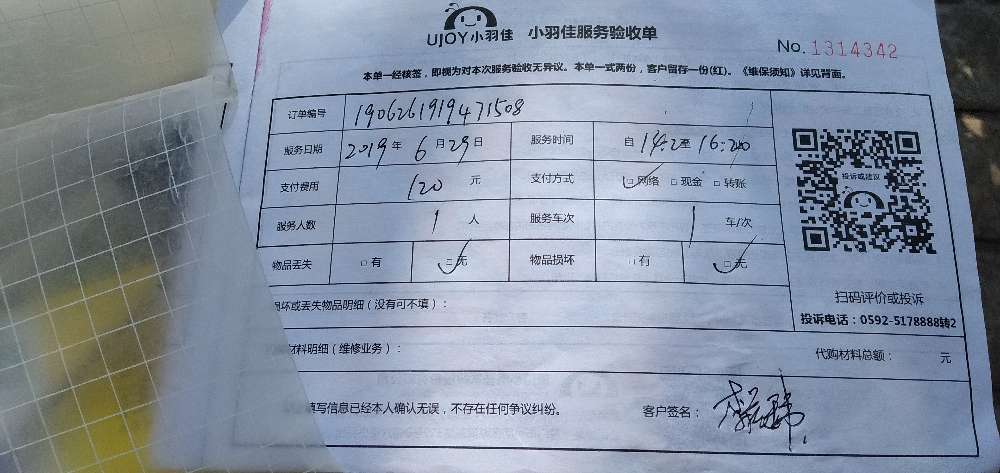 UJOY小羽佳 小羽佳服务验收单
No. 1314342
本单一经核签，即视为对本次服务验收无异议。本单一式两份，客户留存一份(红)。《维保须知》详见背面。
订单编号 1906261919471508
服务日期 2019 年 6 月 29 日 服务时间 自 至 16:
支付费用 120 元 支付方式 □网络 □现金 □转账
服务人数 1 人 服务车次 1 车/次
物品丢失 □有 □无 物品损坏 □有 □无
投诉或建议
扫码评价或投诉
投诉电话：0592-5178888转2
损坏或丢失物品明细（没有可不填）：
材料明细（维修业务）： 代购材料总额： 元
填写信息已经本人确认无误，不存在任何争议纠纷。 客户签名：